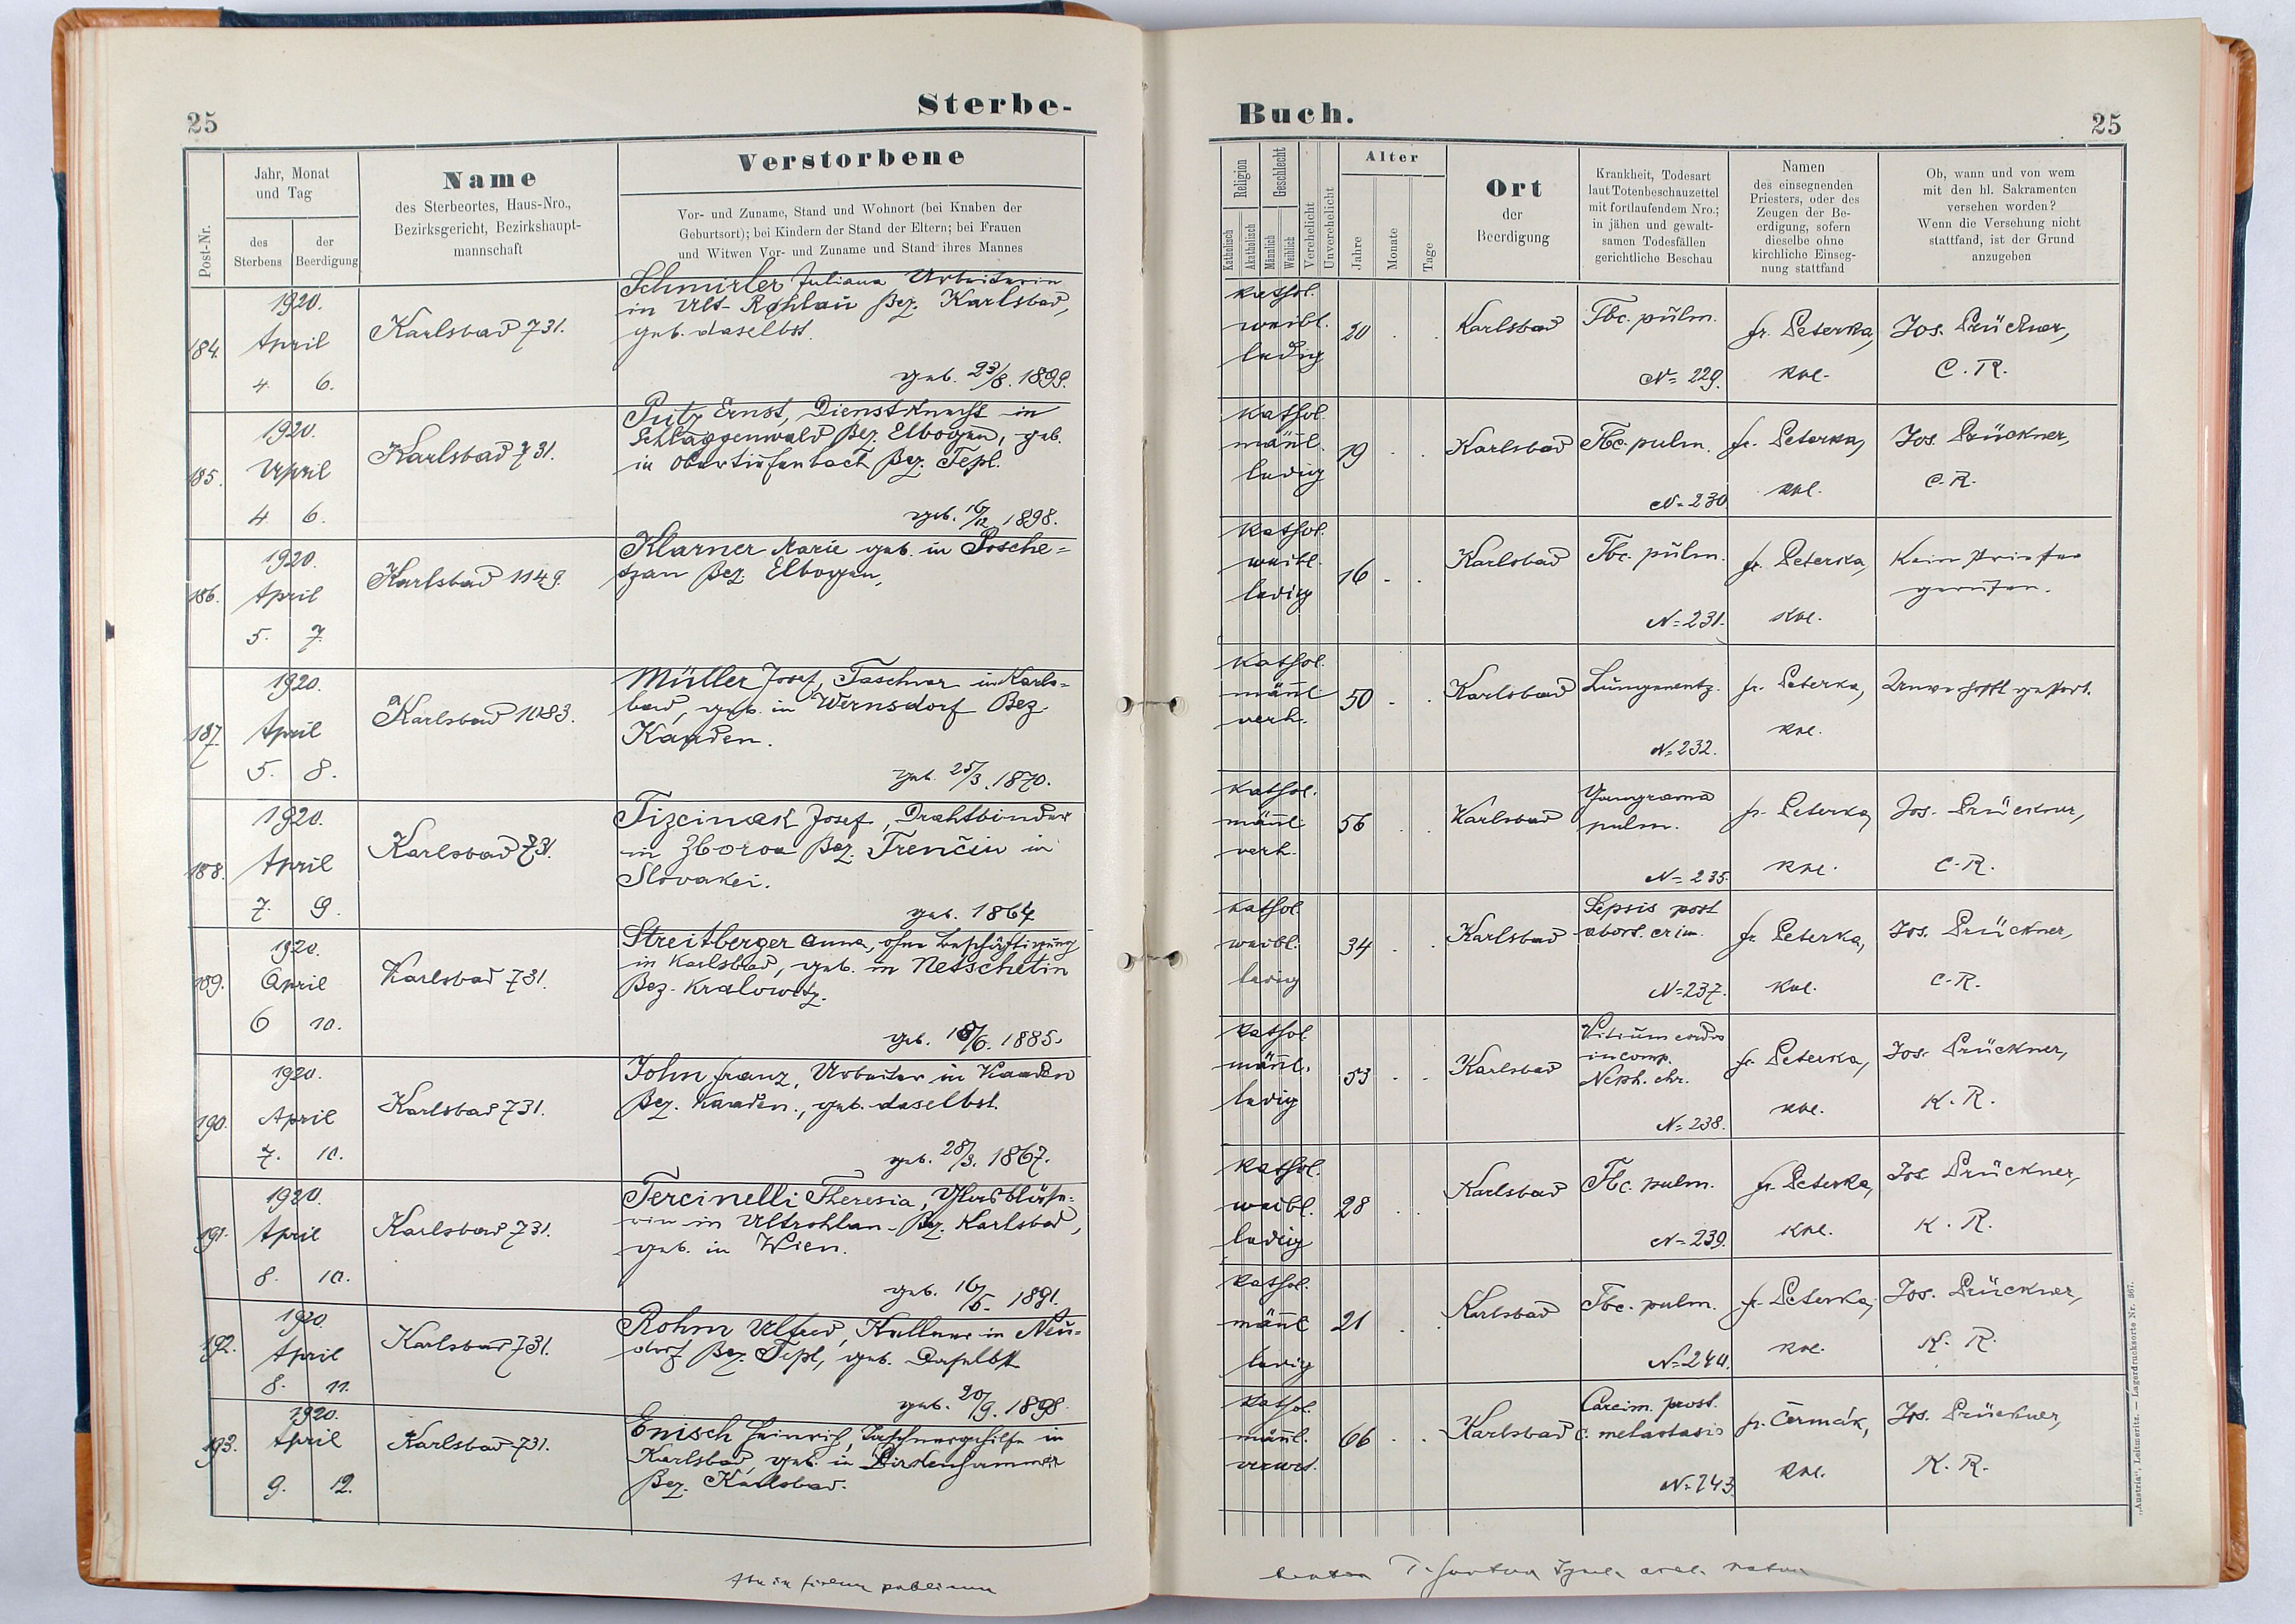 25
Sterbe-
Post-Nr.
Jahr, Monat
und Tag
des
Sterbens
der
Beerdigung
Name
des Sterbeortes, Haus-Nro.,
Bezirksgericht, Bezirkshaupt-
mannschaft
Verstorbene
Vor- und Zuname, Stand und Wohnort (bei Knaben der
Geburtsort); bei Kindern der Stand der Eltern; bei Frauen
und Witwen Vor- und Zuname und Stand ihres Mannes
184.
1920.
April
4. 6.
Karlsbad 731.
Schmirler Juliana Arbeiterin
in Alt-Rohlau Bez. Karlsbad,
geb. daselbst.
geb. 23/8. 1899.
185.
1920.
April
4 6.
Karlsbad 731.
Putz Ernst, Dienstknecht in
Schlaggenwald Bez. Elbogen, geb.
in Obertiefenbach Bez. Tepl.
geb. 16/12 1898.
186.
1920.
April
5. 7.
Karlsbad 1149.
Klarner Marie geb. in Posche=
tzan Bez. Elbogen,
187.
1920.
April
5. 8.
Karlsbad 1083.
Müller Josef, Taschner in Karls=
bad, geb. in Wernsdorf Bez.
Kaaden.
geb. 25/3. 1870.
188.
1920.
April
7. 9.
Karlsbad 731.
Tizcinak Josef, Drahtbinder
in Zborov Bez. Trenčin in
Slovakei.
geb. 1864
189.
1920.
April
6 10.
Karlsbad 731.
Streitberger Anna, ohne Beschäftigung
in Karlsbad, geb. in Netschetin
Bez. Kralowitz.
geb. 18/6. 1885.
190.
1920.
April
7. 10.
Karlsbad 731.
John Franz, Arbeiter in Kaaden
Bez. Kaaden., geb. daselbst.
geb. 28/3. 1867.
191.
1920.
April
8. 10.
Karlsbad 731.
Tercinelli Theresia, Glasbläse=
rin in Altrohlau Bez. Karlsbad,
geb. in Wien.
geb. 16/5. 1891.
192.
1920.
April
8. 11.
Karlsbad 731.
Rohm Alfred, Kellner in Neu=
dorf Bez. Tepl, geb. Daselbst
geb. 20/9. 1898.
193.
1920.
April
9. 12.
Karlsbad 731.
Enisch Heinrich, Taschnergehilfe in
Karlsbad, geb. in Pirkenhammer
Bez. Karlsbad.
Buch.
25
Religion
Katholisch
Akatholisch
Geschlecht
Männlich
Weiblich
Verehelicht
Unverehelicht
Alter
Jahre
Monate
Tage
Ort
der
Beerdigung
Krankheit, Todesart
laut Totenbeschauzettel
mit fortlaufendem Nro.;
in jähen und gewalt-
samen Todesfällen
gerichtliche Beschau
Namen
des einsegnenden
Priesters, oder des
Zeugen der Be-
erdigung, sofern
dieselbe ohne
kirchliche Einseg-
nung stattfand
Ob, wann und von wem
mit den hl. Sakramenten
versehen worden?
Wenn die Versehung nicht
stattfand, ist der Grund
anzugeben
kathol.
weibl.
ledig
20
Karlsbad
Tbc. pulm.
N= 229.
fr. Peterka,
Jos. Prückner,
C. R.
kathol.
männl.
ledig
19
Karlsbad
Tbc. pulm.
N= 230
fr. Peterka,
Jos. Prückner,
C. R.
kathol.
weibl.
ledig
16
Karlsbad
Tbc. pulm.
N= 231.
fr. Peterka,
Kein Priester
gerufen.
kathol.
männl.
verh.
50
Karlsbad
Lungenentz.
N= 232.
fr. Peterka,
Unverhofft gestorb.
kathol.
männl.
verh.
56
Karlsbad
Gangraena
pulm.
N= 235.
fr. Peterka,
Jos. Prückner,
C. R.
kathol.
weibl.
ledig
34
Karlsbad
Sepsis post
abort. crim.
N= 237.
fr. Peterka,
Jos. Prückner,
C. R.
kathol.
männl.
ledig
53
Karlsbad
Vitium cordis
incomp.
Neph. chr.
N= 238.
fr. Peterka,
Jos. Prückner,
K. R.
kathol.
weibl.
ledig
28
Karlsbad
Tbc. pulm.
N= 239.
fr. Peterka,
Jos. Prückner,
K. R.
kathol.
männl
ledig
21
Karlsbad
Tbc. pulm.
N= 240.
fr. Peterka,
Jos. Prückner,
K. R.
kathol.
männl.
verwt.
66
Karlsbad
Carcim. prost.
c. metastasis
N= 243
fr. Čermák,
Jos. Prückner,
K. R.
„Austria“, Leitmeritz. — Lagerdrucksorte Nr. 867.